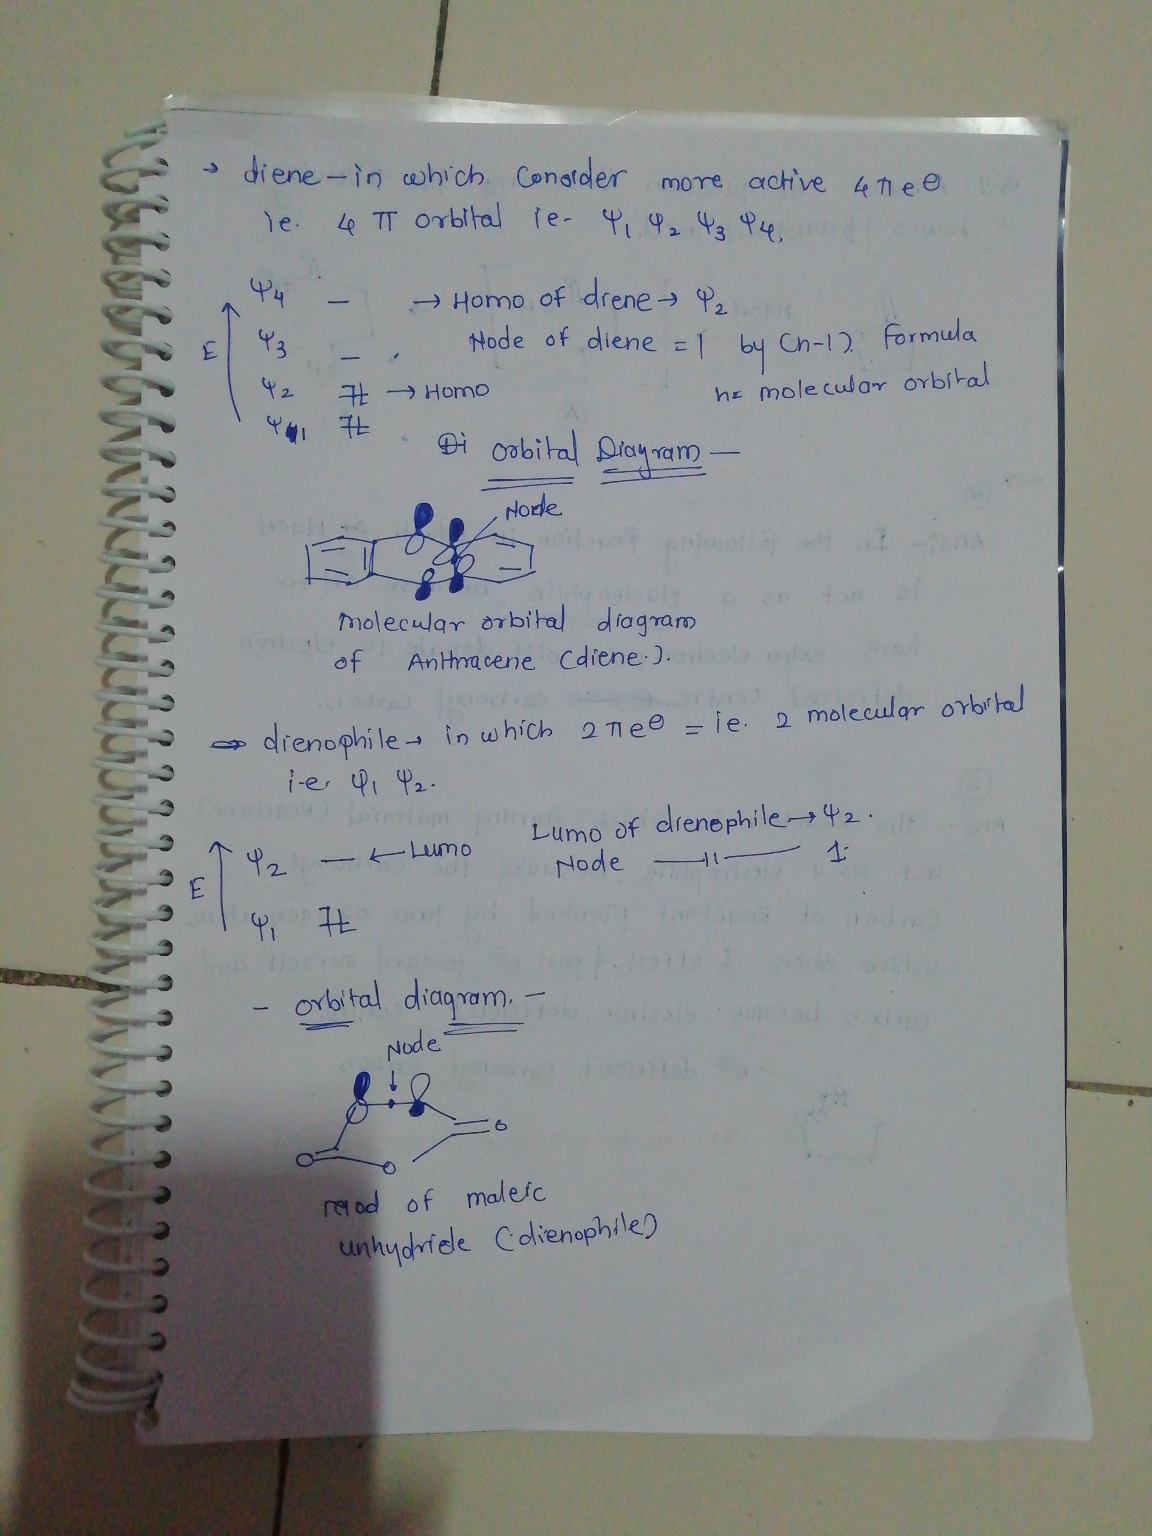 → diene – in which Consider more active 4πe⊖
ie. 4 π orbital ie- Ψ1 Ψ2 Ψ3 Ψ4,
Ψ4 – → Homo of diene → Ψ2
E Ψ3 – Node of diene = 1 by (n-1) Formula
Ψ2 → Homo n= molecular orbital
Ψ1
orbital Diagram –
Node
molecular orbital diagram
of Anthracene (diene.).
⇒ dienophile → in which 2πe⊖ = ie. 2 molecular orbital
i.e. Ψ1 Ψ2.
Lumo of dienophile → Ψ2.
Ψ2 — ← Lumo Node —11— 1.
E
Ψ1
– orbital diagram. –
Node
O
O
O
mod of maleic
unhydride (dienophile)